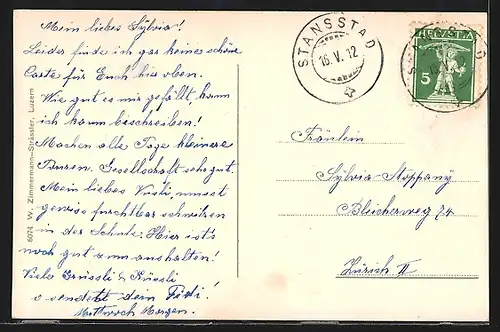 Mein liebes Sylvia!
Leider finde ich gar keine schöne
Carte für Euch hie oben.
Wie gut es mir gefällt, kann
ich kaum beschreiben!
Machen alle Tage kleinere
Touren. Gesellschaft sehr gut.
Mein liebes Vusli, musst
gewiss furchtbar schwitzen
in der Schule. Hier ist's
noch gut z'um anhalten!
Viele Grüssli & Küssli
sendet dem
Mittwoch Morgen.
6074 W. Zimmermann-Strässler, Luzern
STANSSTAD
16.V.12
HELVETIA
5
Fräulein
Sylvia Stoppany
Bleicherweg 74
Zürich II